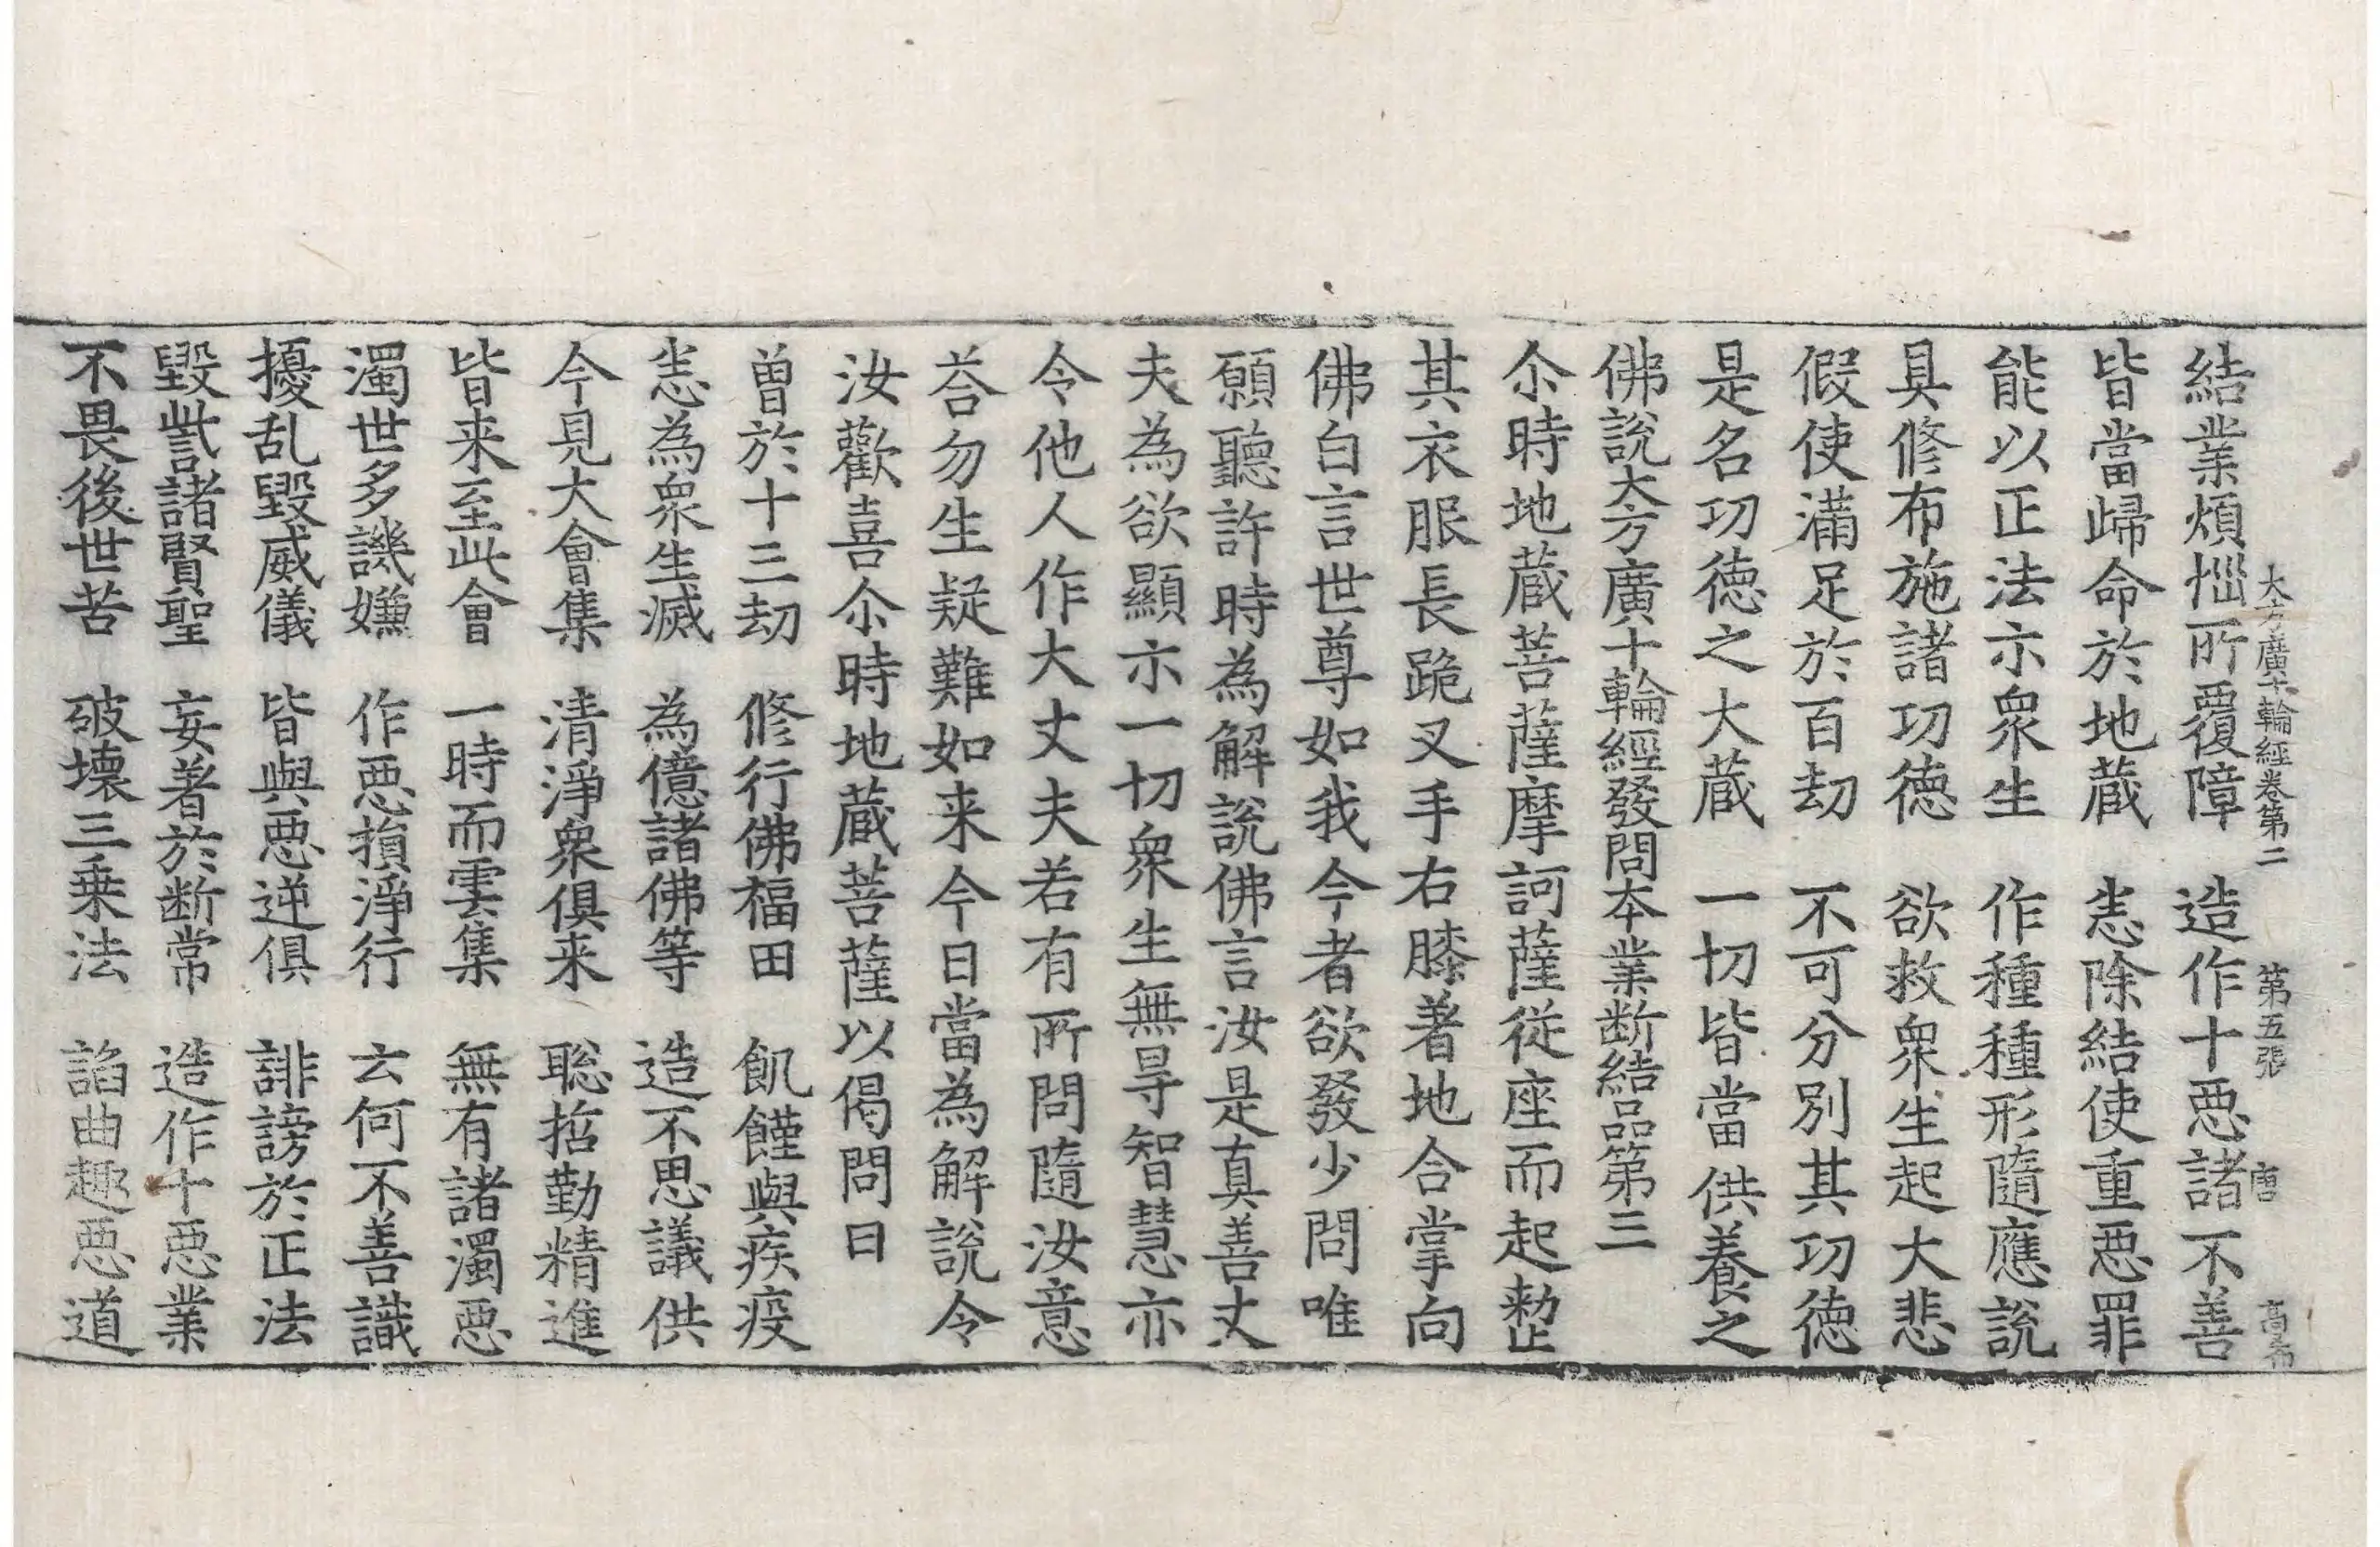 大方廣十輪經卷第二 第五張 唐
結業煩惱所覆障 造作十惡諸不善
皆當歸命於地蔵 恚除結使重惡罪
能以正法示衆生 作種種形隨應說
具修布施諸功德 欲救衆生起大悲
假使滿足於百劫 不可分別其功德
是名功德之大蔵 一切皆當供養之
佛說大方廣十輪經發問本業断結品第三
尒時地蔵菩薩摩訶薩從座而起整
其衣服長跪叉手右膝著地合掌向
佛白言世尊如我今者欲發少問唯
願聽許時為解説佛言汝是真善丈
夫為欲顯示一切衆生無㝵智慧亦
令他人作大丈夫若有所問隨汝意
荅勿生疑難如来今日當為解說令
汝歡喜尒時地蔵菩薩以偈問曰
曽於十三劫 修行佛福田 飢饉與疾疫
恚為衆生滅 為億諸佛等 造不思議供
今見大會集 清淨衆俱来 聡哲勤精進
皆来至此會 一時而雲集 無有諸濁惡
濁世多譏嫌 作惡損淨行 云何不善識
擾乱毀威儀 皆與惡逆俱 誹謗於正法
毀呰諸賢聖 妄著於断常 造作十惡業
不畏後世苦 破壊三乗法 諂曲趣惡道